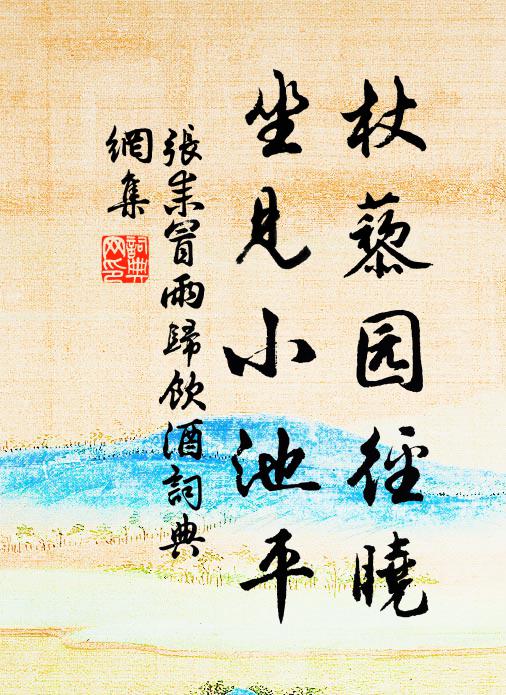 杖藜园径晓
坐见小池平
張耒冒雨歸飲酒詞典
網集
詞典
网印